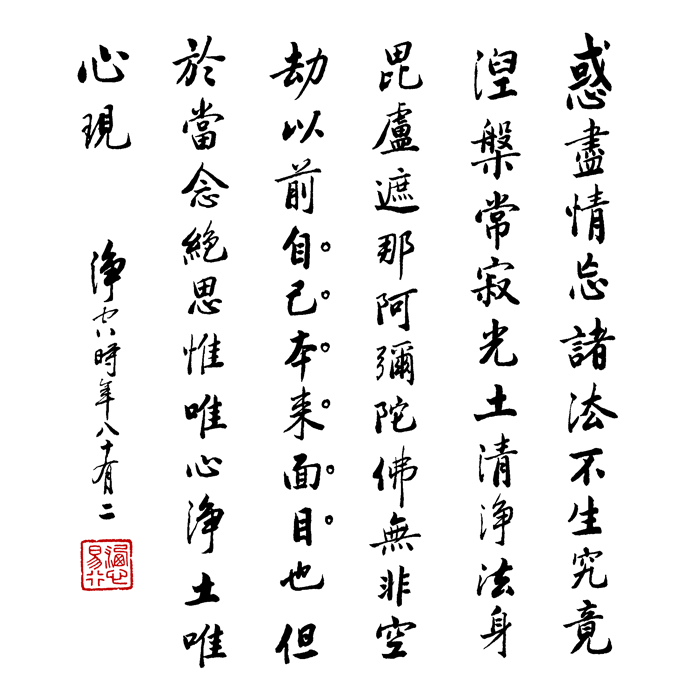 惑盡情忘諸法不生究竟
涅槃常寂光土清淨法身
毘盧遮那阿彌陀佛無非空
劫以前自。己。本。来。面。目。也但
於當念絕思惟唯心淨土唯
心現
淨空時年八十有二